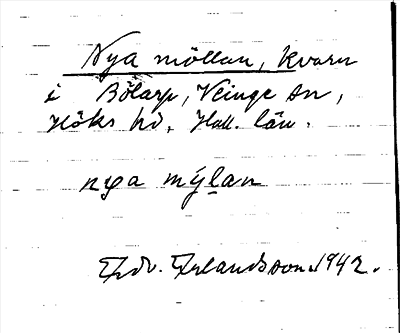 Nya möllan, kvarn
i Bölarp, Veinge sn,
Höks hd, Hall. län.
nya mýlan
Edv. Erlandsson. 1942.